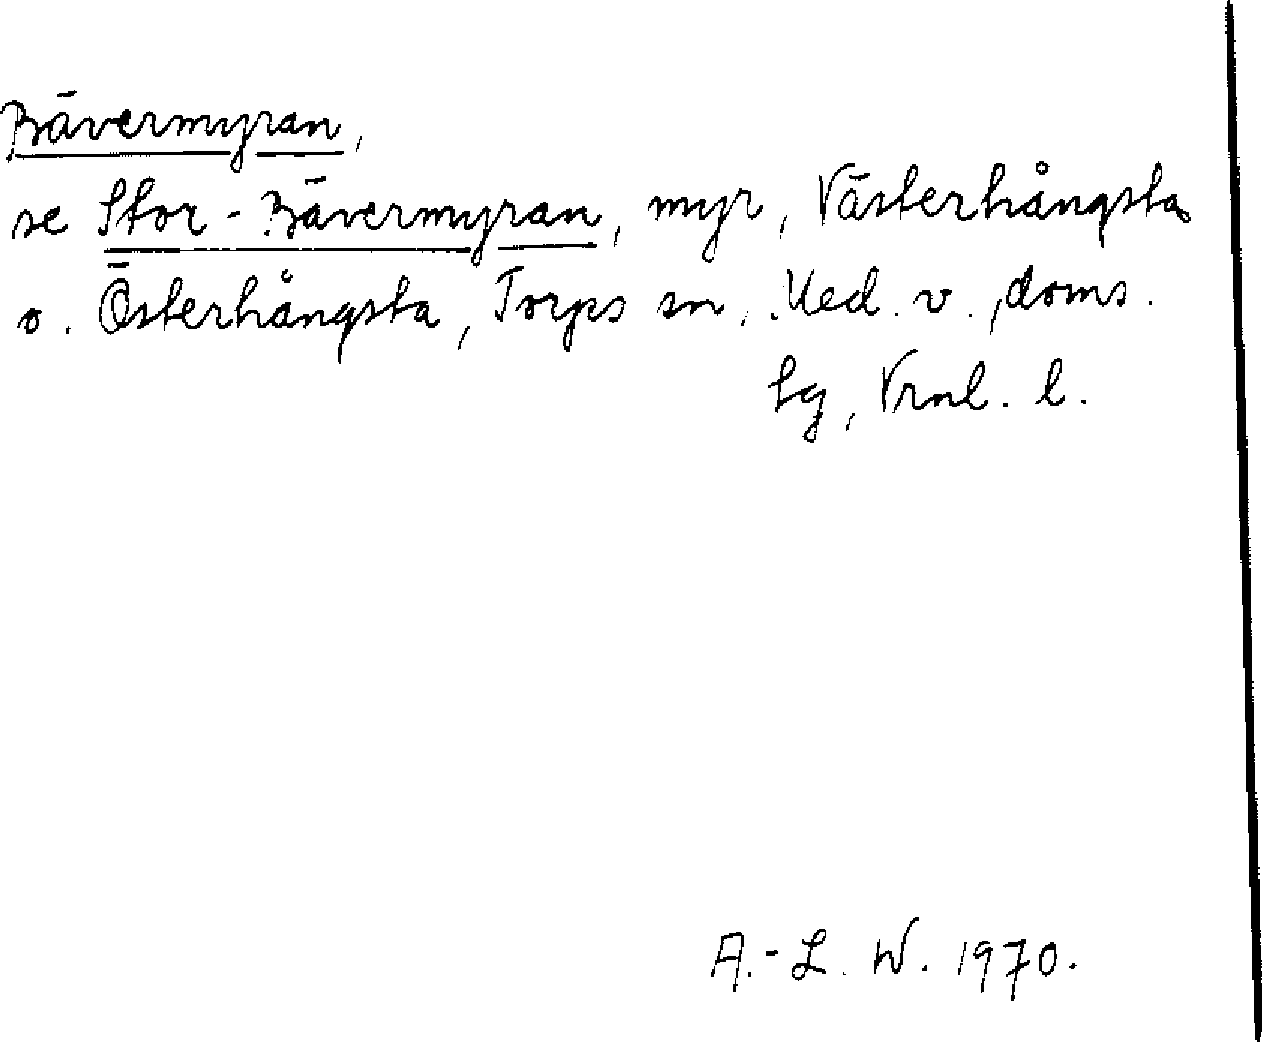 Bävermyran,
se Stor-Bävermyran, myr, Västerhångsta
o. Österhångsta, Torps sn, Med. v. doms.
tg, Vrnl. l.
A.-L. W. 1970.